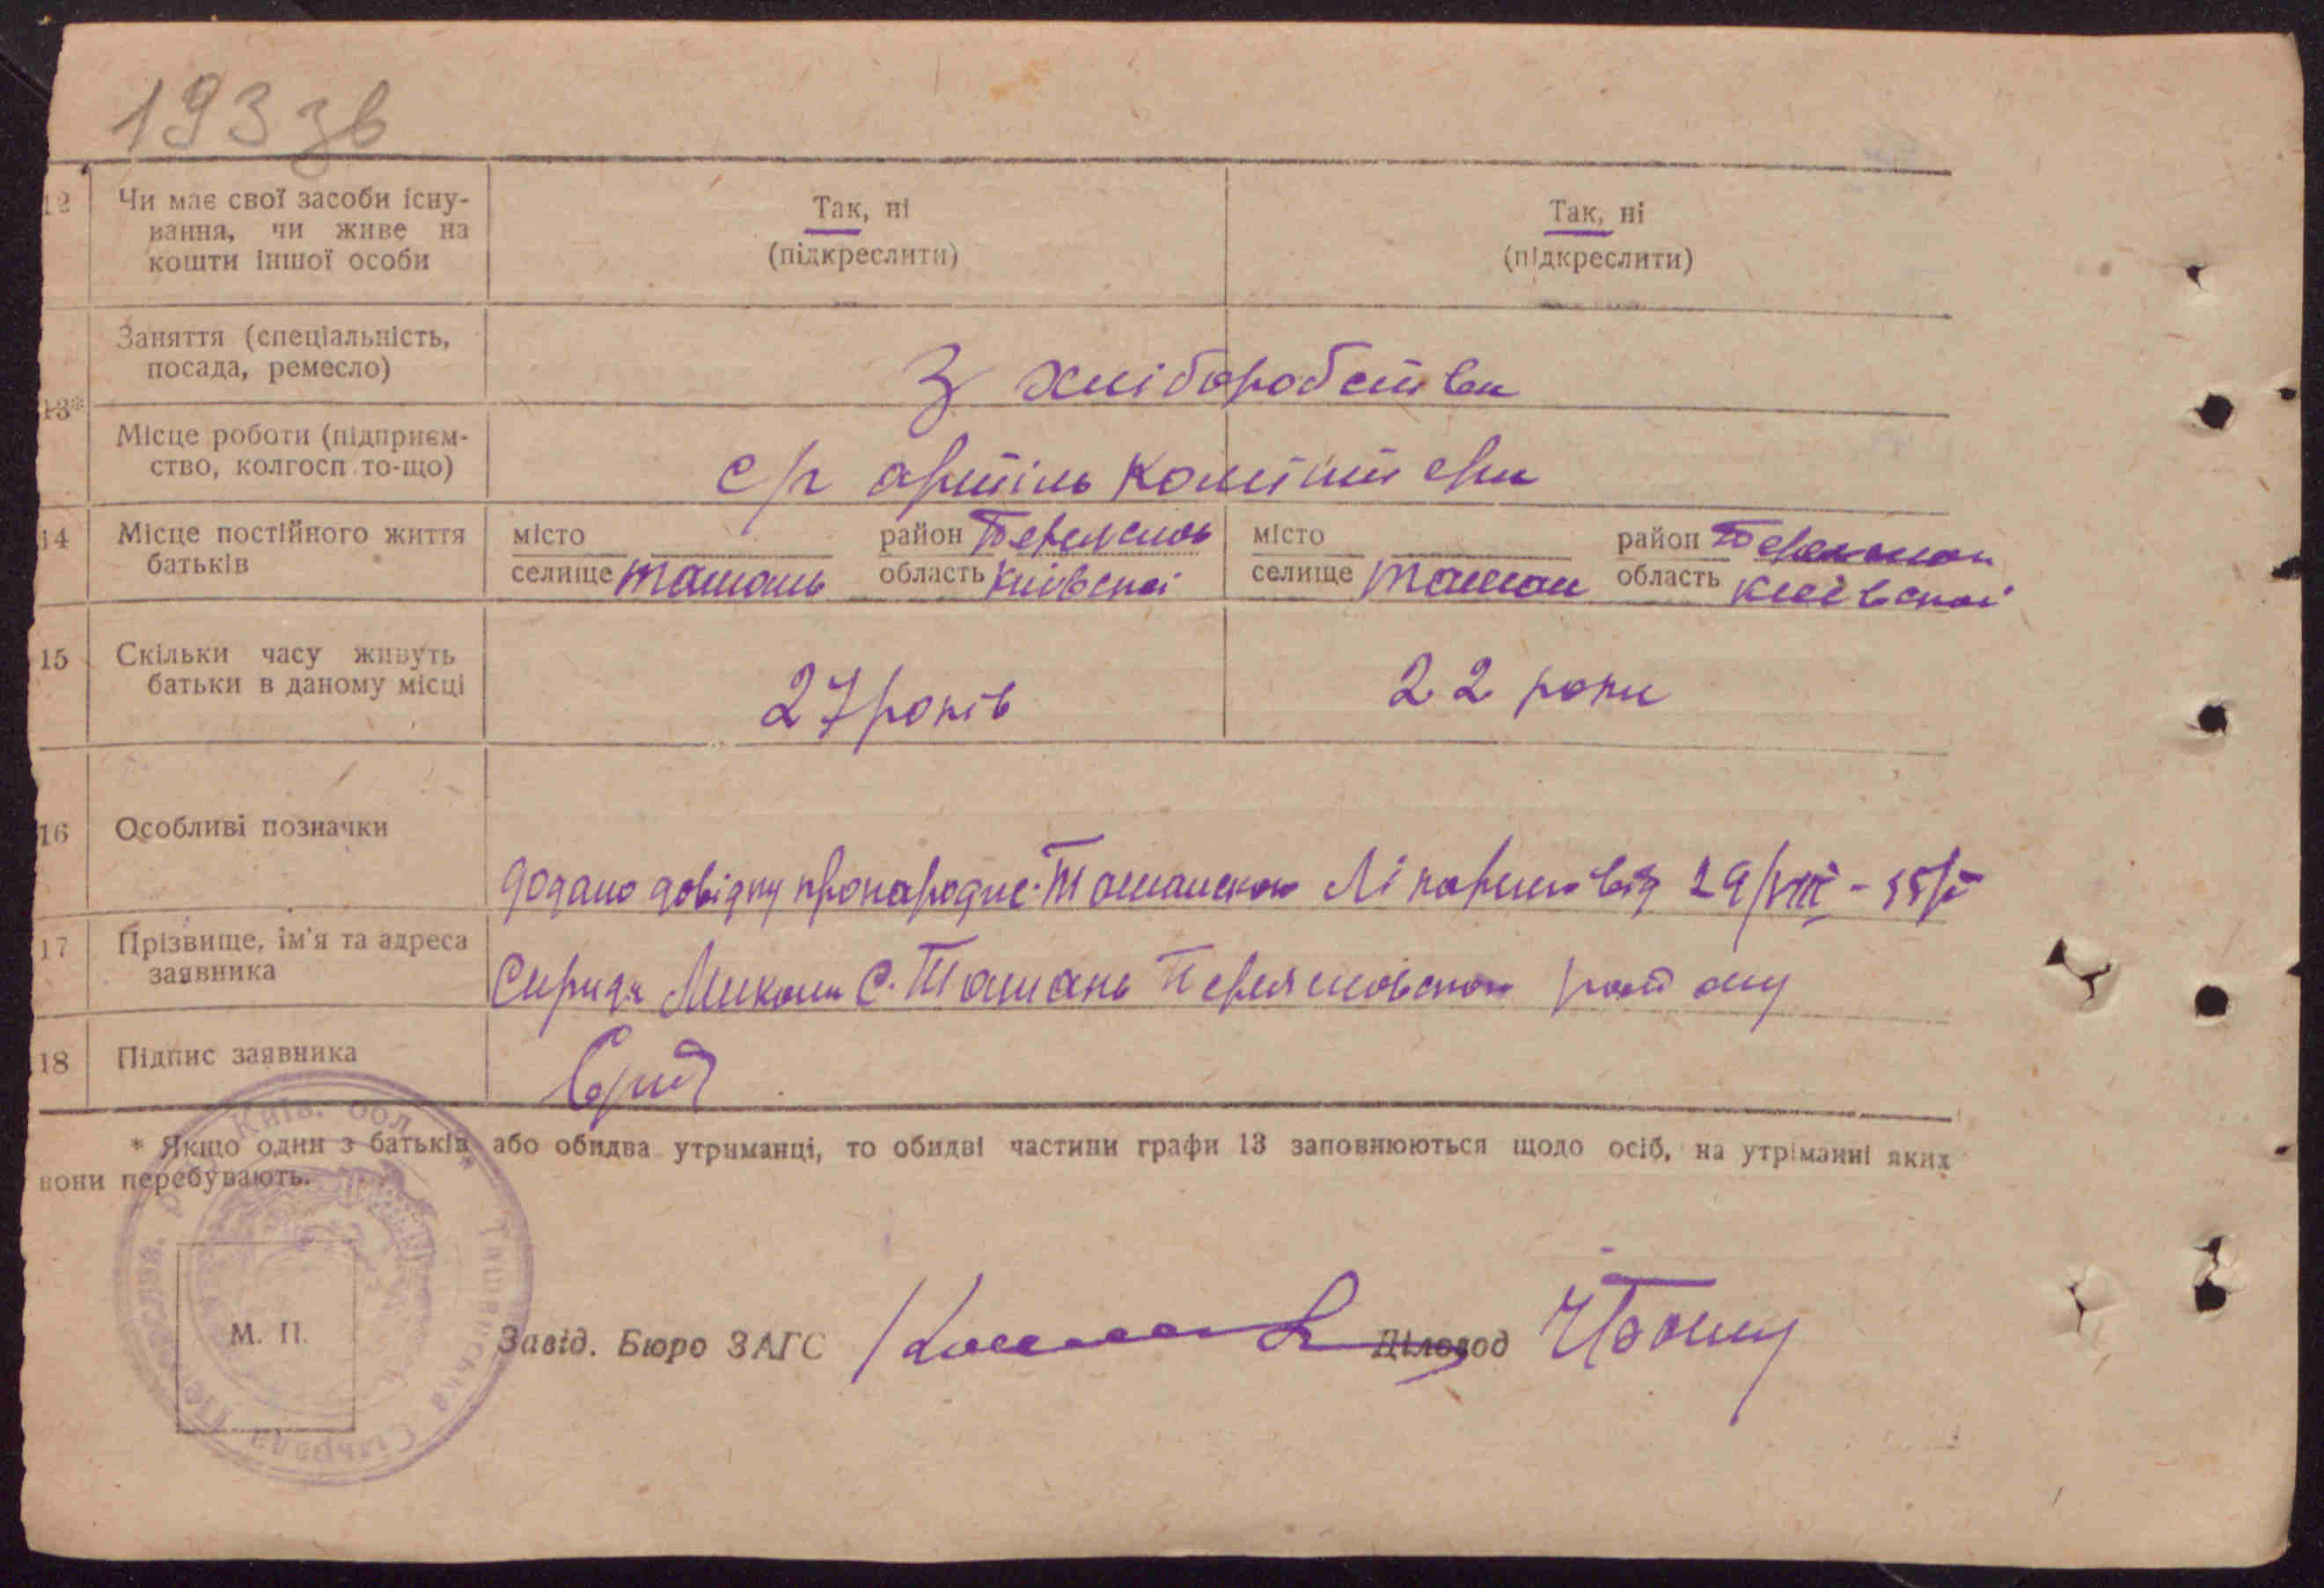 193 зв
12 Чи має свої засоби існу-
вання, чи живе на
кошти іншої особи
Так, ні
(підкреслити)
Так, ні
(підкреслити)
13*
Заняття (спеціальність,
посада, ремесло)
З хліборобства
Місце роботи (підприєм-
ство, колгосп то-що)
с/г артіль Комінтерн
14 Місце постійного життя
батьків
місто
селище Ташань
район Переяслов
область Київської
місто
селище Ташан
район
область Київської
15 Скільки часу живуть
батьки в даному місці
27 років
22 роки
16 Особливі позначки
додано довідку Ташанської від 29/VIII
17 Прізвище, ім'я та адреса
заявника
Микола с. Ташань Переяславського району
18 Підпис заявника
* Якщо один з батьків або обидва утриманці, то обидві частини графи 13 заповнюються щодо осіб, на утріманні яких
вони перебувають.
Київ. обл. * Ташанська Сільрада
М. П.
Завід. Бюро ЗАГС
Діловод